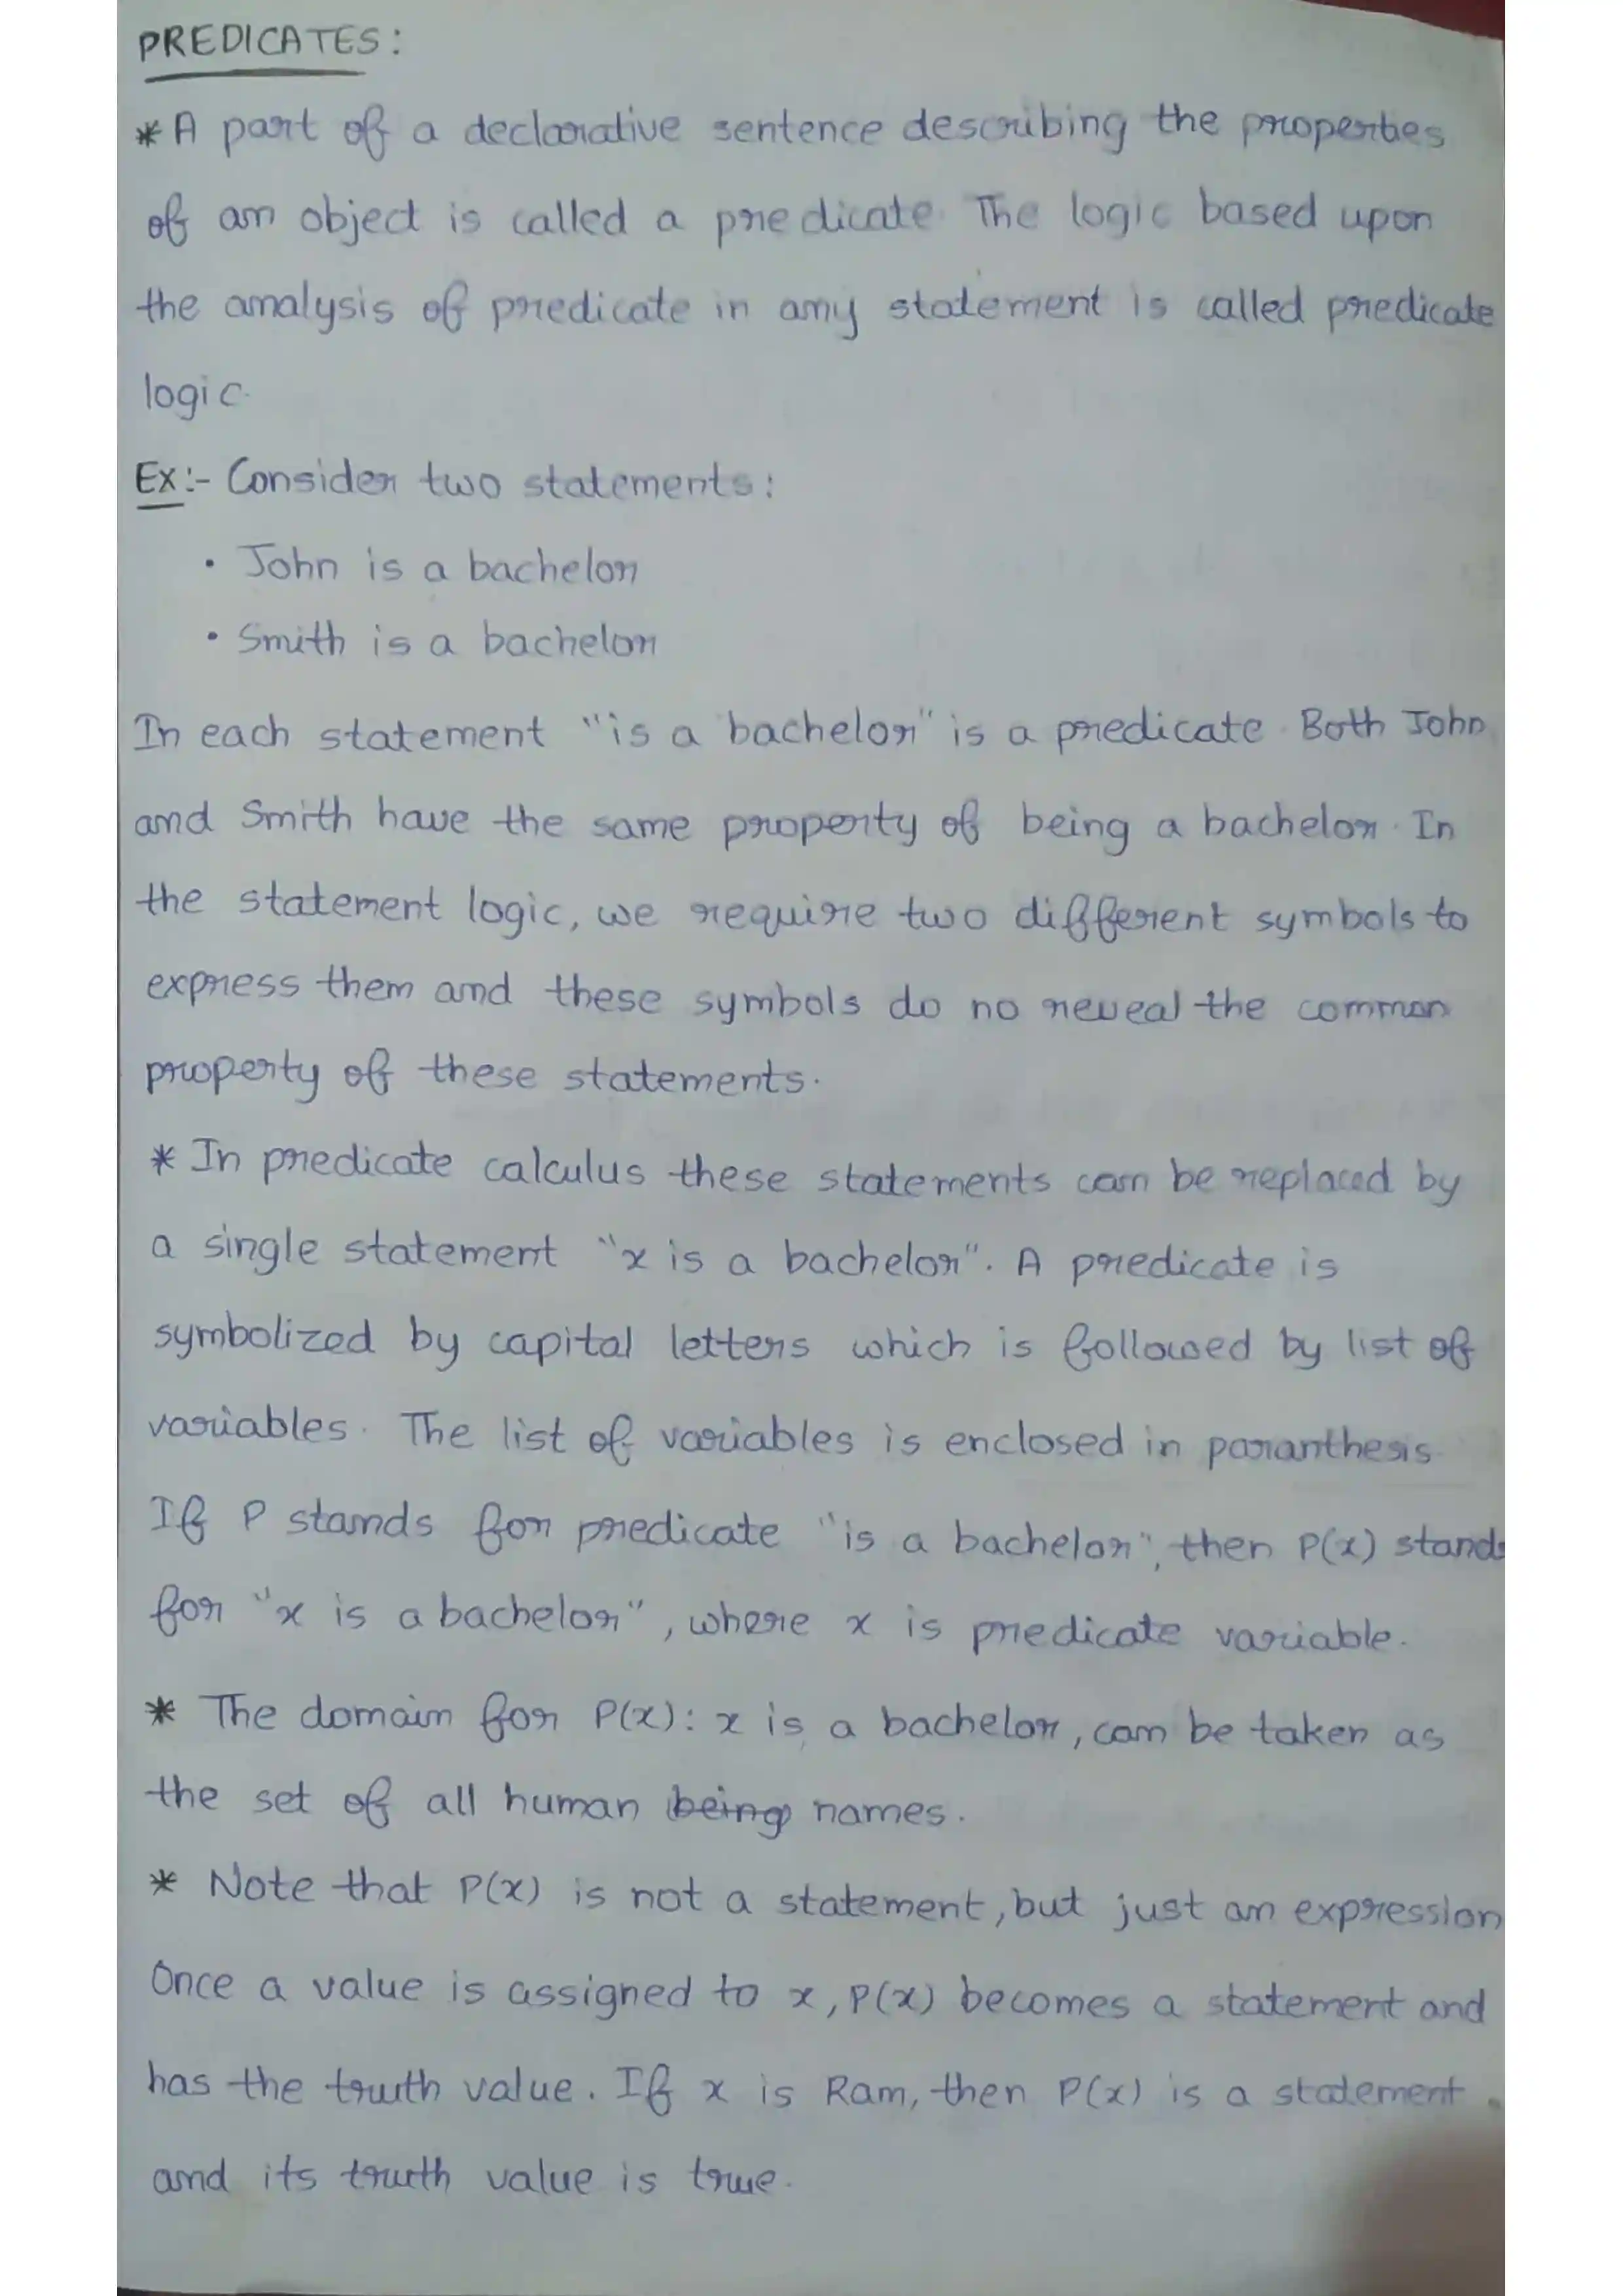 PREDICATES:
* A part of a declarative sentence describing the properties
of an object is called a predicate. The logic based upon
the analysis of predicate in any statement is called predicate
logic.
Ex:- Consider two statements:
• John is a bachelor
• Smith is a bachelor
In each statement "is a bachelor" is a predicate. Both John
and Smith have the same property of being a bachelor. In
the statement logic, we require two different symbols to
express them and these symbols do no reveal the common
property of these statements.
* In predicate calculus these statements can be replaced by
a single statement "x is a bachelor". A predicate is
symbolized by capital letters which is followed by list of
variables. The list of variables is enclosed in paranthesis.
If P stands for predicate "is a bachelor", then P(x) stands
for "x is a bachelor", where x is predicate variable.
* The domain for P(x): x is a bachelor, can be taken as
the set of all human being names.
* Note that P(x) is not a statement, but just an expression
Once a value is assigned to x, P(x) becomes a statement and
has the truth value. If x is Ram, then P(x) is a statement
and its truth value is true.